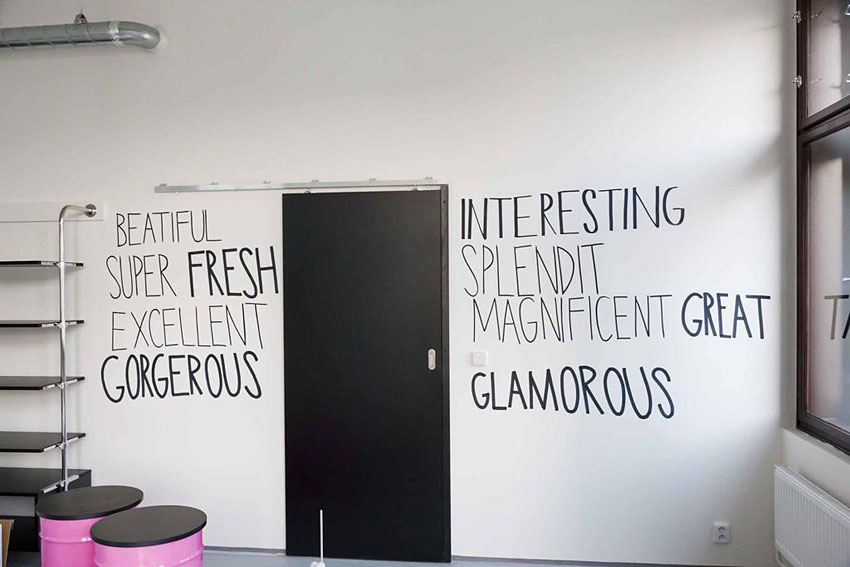 BEATIFUL
SUPER FRESH
EXCELLENT
GORGEROUS
INTERESTING
SPLENDIT
MAGNIFICENT GREAT
GLAMOROUS